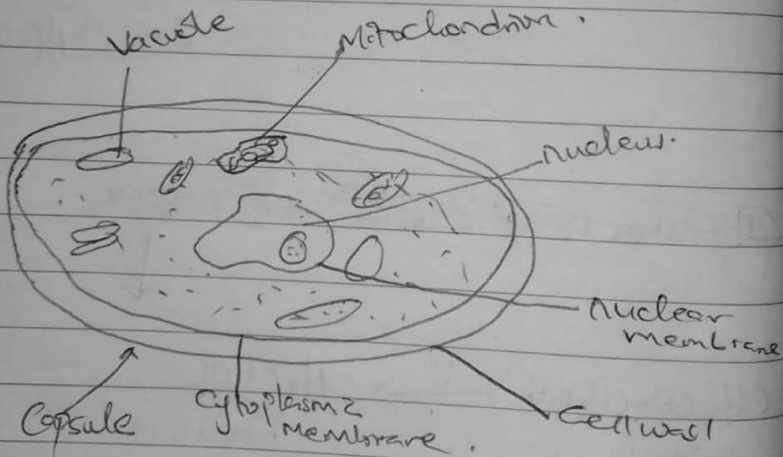 Vacuole
Mitochondrion.
nucleus.
nuclear
membrane
Cell wall
Cytoplasm2
membrane.
Capsule